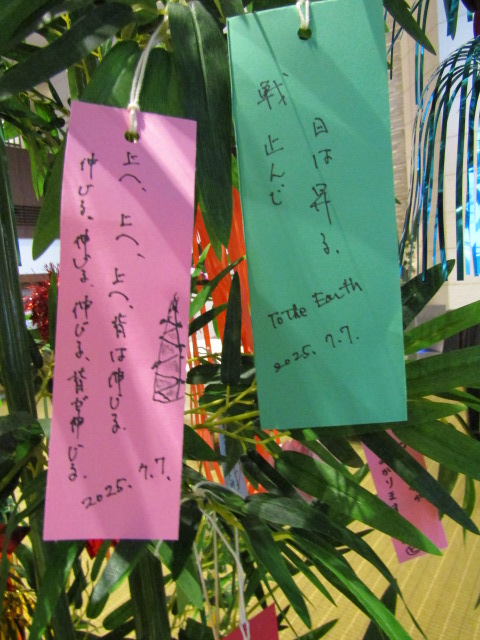 上へ、上へ、上へ、背は伸びる。
伸びる、伸びる、伸びる、背が伸びる。
2025. 7.7.
日は昇る、
戦止んじ
To the Earth
2025. 7.7.
かります